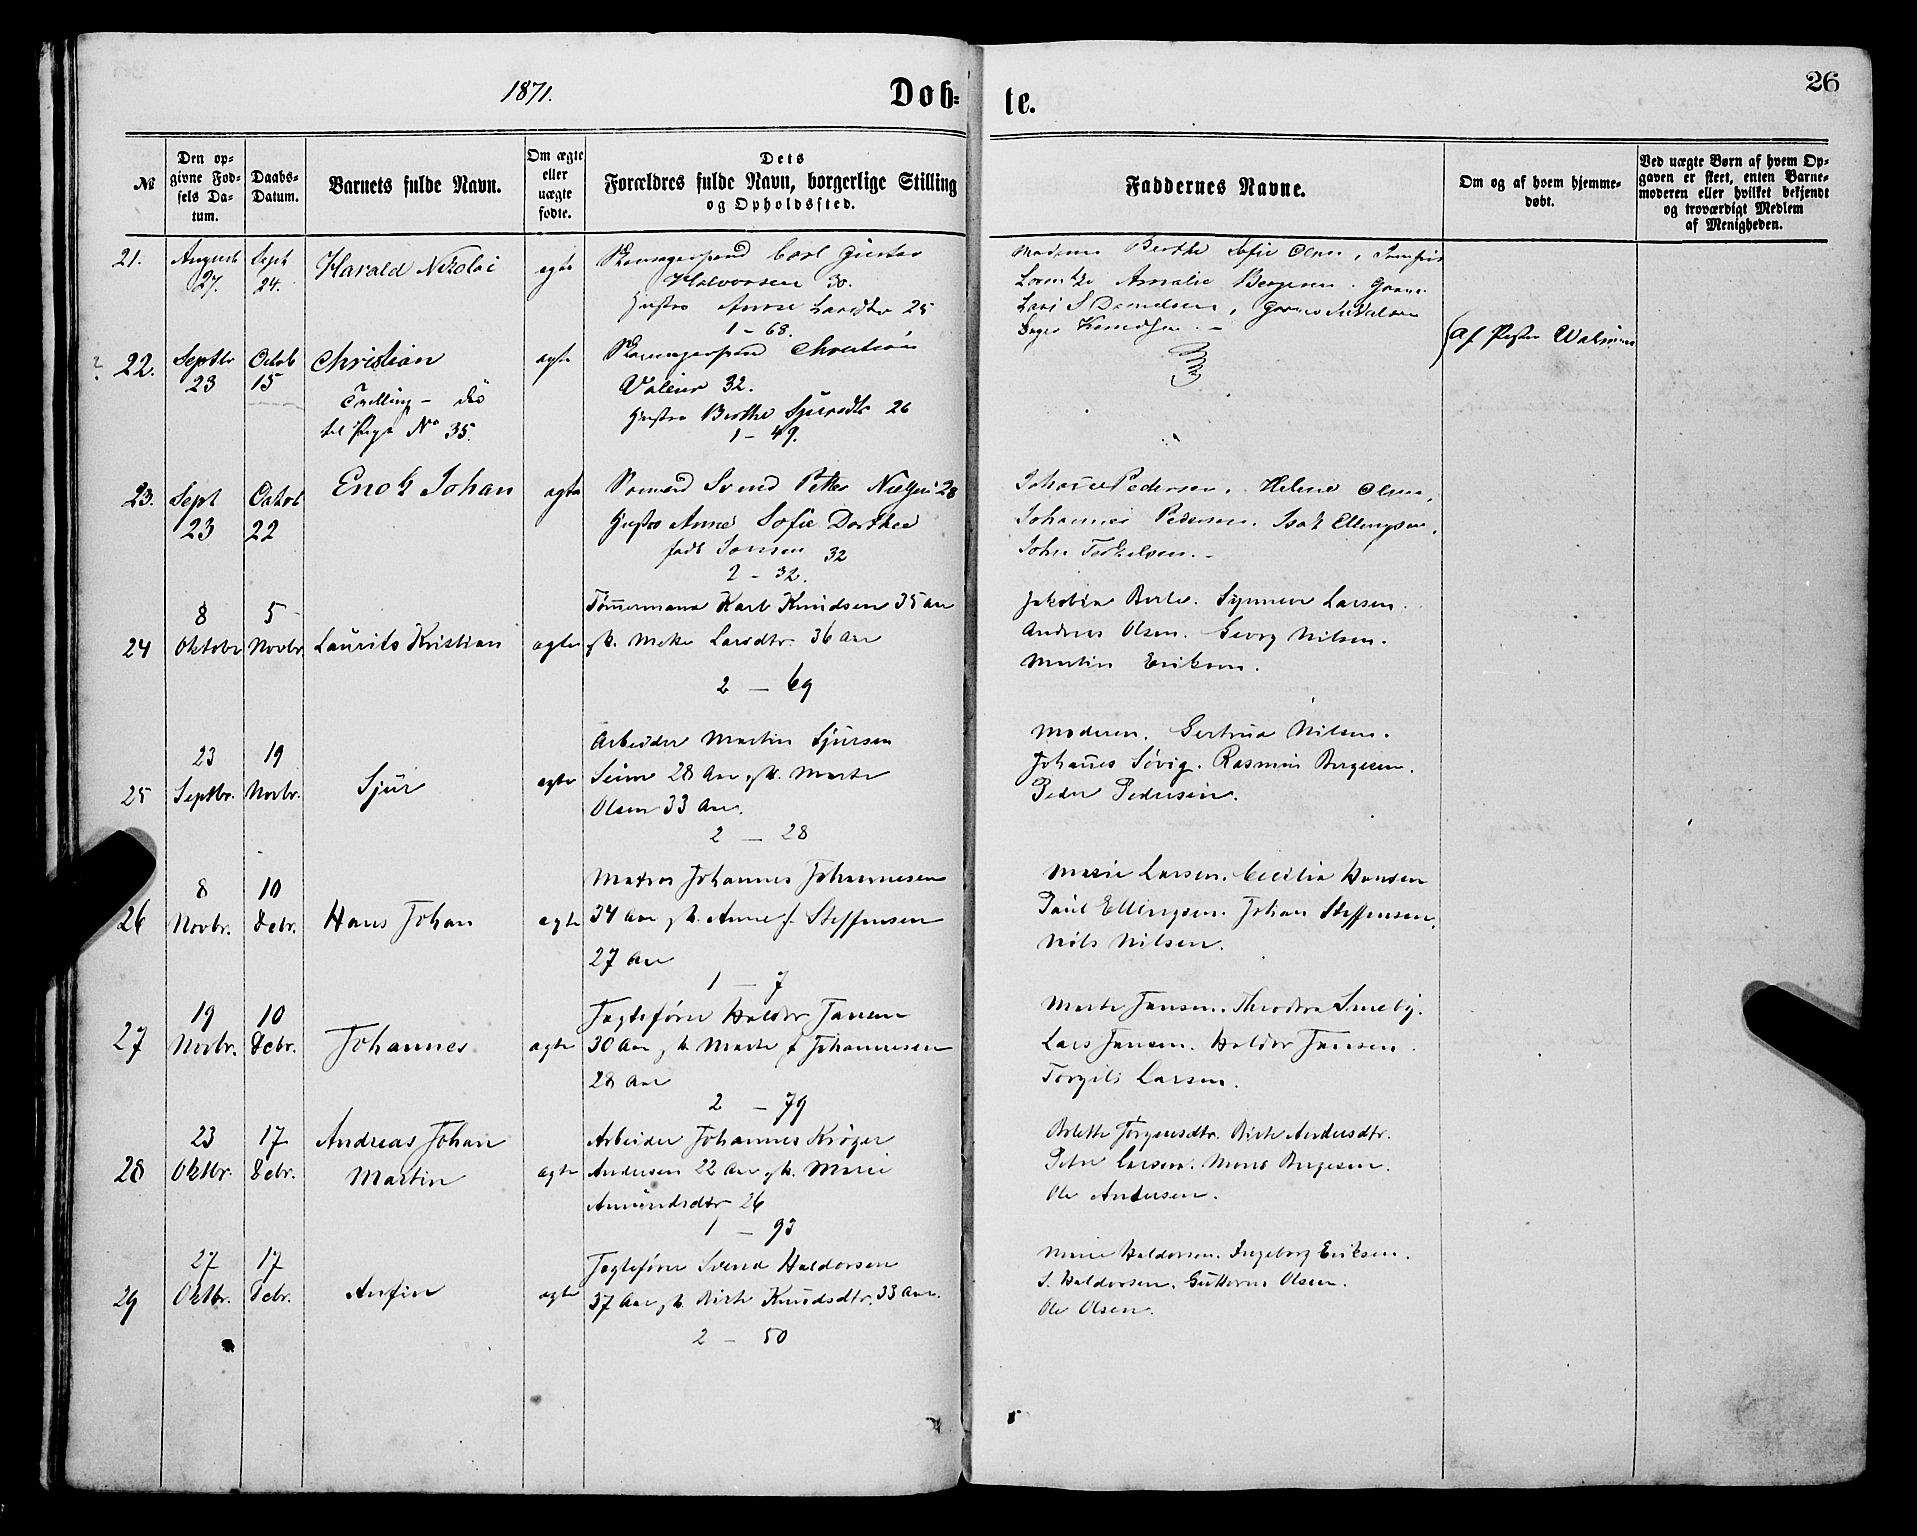 1871.
Døb-
te.
26
№
Den op-
givne Fød-
sels Da-
tum.
Daabs-
Datum.
Barnets fulde Navn.
Om ægte
eller
uægte
fødte.
Dets
Forældres fulde Navn, borgerlige Stilling
og Opholdssted.
Faddernes Navne.
Om og af hvem hjemme-
døbt.
Ved uægte Børn af hvem Op-
gaven er skeet, enten Barne-
moderen eller hvilket bekjendt
og troværdigt Medlem
af Menigheden.
21.
August
27.
Sept
24.
Harald Nikolai
ægte
Carl Gustav
Halvorsen 30.
Hustro Anne Larsdtr 25
1 - 68.
Berthe Sofie Olsen,
Amalie Bergesen.
22.
Septbr
23
Octob
15
Christian
Tvilling -
No 35.
ægte
Christian
32.
Hustro Berthe Sjursdtr 26
1 - 49.
Af
23.
Sept
23
Octob
22
Enok Johan
ægte
Svend Petter Nielsen 28
Hustro Anne Sofie Dorthea
født Jansen 32
2 - 32.
Pedersen. Helene Olsen,
Johannes Pedersen. Isak Ellingsen.
John Terkelsen. -
24
8
Oktobr
5
Novbr.
Laurits Kristian
ægte
Tømermand Karl Knudsen 35 Aar
gk. Mette Larsdtr. 36 Aar
2 - 69
Jakobia Berle. Synneve Larsen.
Andreas Olsen. Georg Nilsen.
Martin Eriksen.
25
23
Septbr.
19
Novbr.
Sjur
ægte
Arbeider Martin Sjursen
Seim 28 Aar gk. Marte
Olsen 33 Aar.
2 - 28
Moderen. Gertrud Nilsen.
Johannes Søvig. Rasmus Bergesen.
Peder Pedersen.
26
8
Novbr.
10
Debr.
Hans Johan
ægte
Matros Johannes Johannesen
34 Aar gk. Anne f. Steffensen
27 Aar
1 - 7
Marie Larsen. Cecilia Hansen
Paul Ellingsen. Johan Steffensen.
Nils Nilsen.
27
19
Novbr.
10
Debr.
Johannes
ægte
Jagtefører Haldor Jansen
30 Aar gk. Marte f Johannesen
28 Aar
2 - 79
Marte Jansen. Theodora Smeby.
Lars Jansen. Haldor Jansen.
Torgils Larsen.
28
23
Oktbr.
17
Debr.
Andreas Johan
Martin
ægte
Arbeider Johannes Krøger
Andersen 22 Aar gk. Marie
Amundsdtr 26
1 - 93
Arlette Jørgensdtr. Birte Andersdtr.
Peter Larsen. Mons Bergesen.
Ole Andersen.
29
27
Oktbr.
17
Debr.
Anfin
ægte
Jagtefører Svend Haldorsen
37 Aar gk. Birte Knudsdtr. 33 Aar.
2 - 50
Marie Haldorsen. Ingeborg Eriksen.
S. Haldorsen. Guttorm Olsen.
Ole Olsen.